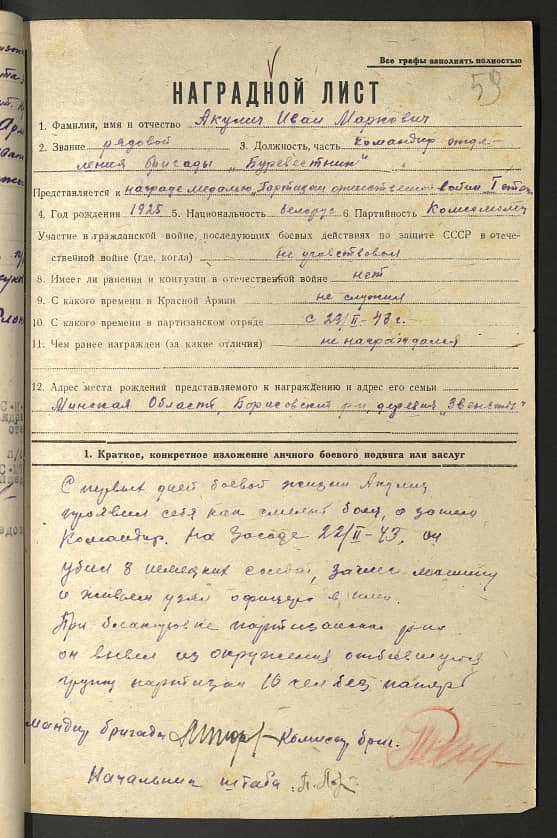 Все графы заполнять полностью
59
НАГРАДНОЙ ЛИСТ
1. Фамилия, имя и отчество Акулич Иван Маркович
2. Звание рядовой 3. Должность, часть командир отде-
ления бригады „Буревестник"
Представляется к награде медалью „Партизан отечественной войны" I степ.
4. Год рождения 1925 5. Национальность белорус 6. Партийность Комсомолец
Участие в гражданской войне, последующих боевых действиях по защите СССР в отече-
ственной войне (где, когда) не участвовал
8. Имеет ли ранения и контузии в отечественной войне нет
9. С какого времени в Красной Армии не служил
10. С какого времени в партизанском отряде с 23/II-43 г.
11. Чем ранее награжден (за какие отличия) не награждался
12. Адрес места рождения представляемого к награждению и адрес его семьи
Минская Область, Борисовский р-н, деревня
1. Краткое, конкретное изложение личного боевого подвига или заслуг
С первых дней боевой жизни Акулич
проявил себя как смелый боец, а затем
Командир. На Засаде 22/II-43. он
убил 8 немецких солдат, зажег машину
и живьем узял офицера в плен.
При блокировке партизанской р-на
он вывел из окружения отбившуюся
группу партизан 16 чел без потерь
мандир бригады Комиссар бриг.
Начальник штаба